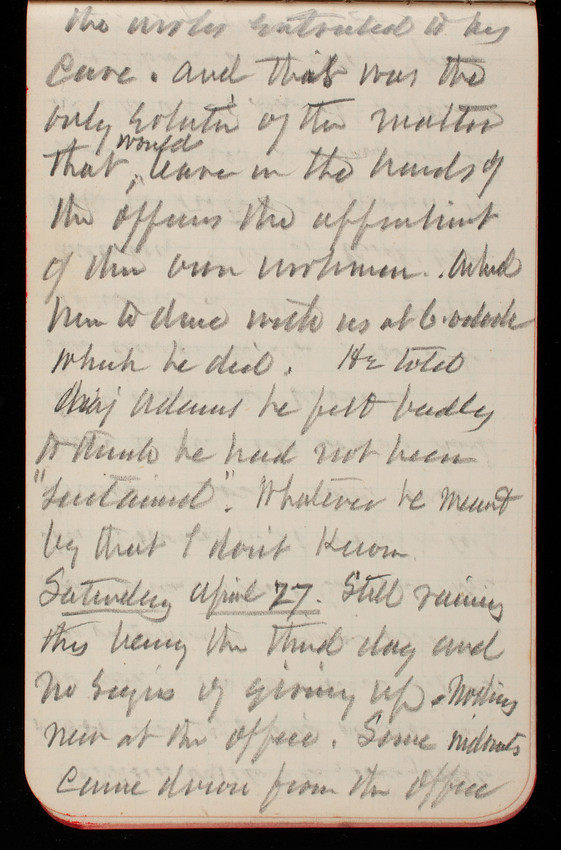 the works entrusted to his
care. and that was the
only soluti of the matter
that would leave in the hands of
the officers the appointment
of their own workmen. Asked
him to dine with us at 6 oclock
which he did. He told
Maj Adams he felt badly
to think he had not been
"sustained". Whatever he meant
by that I dont Know
Saturday April 27. Still raining
this being the third day and
no signs of giving up. Nothing
new at the office. Some
came down from the office